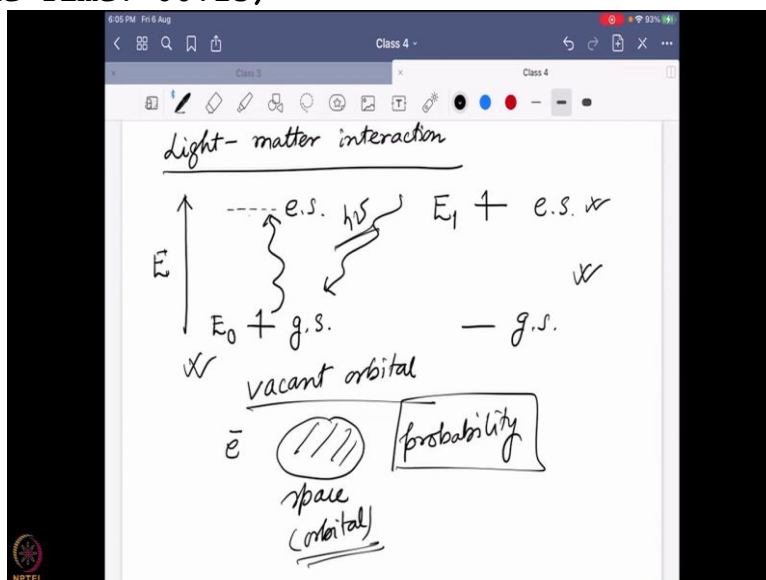 6:05 PM Fri 6 Aug
93%
Class 4
Class 3
Class 4
Light-matter interaction
e.s. hν E₁ e.s.
E
E₀ g.s. g.s.
vacant orbital
ē probability
space
(orbital)
NPTEL